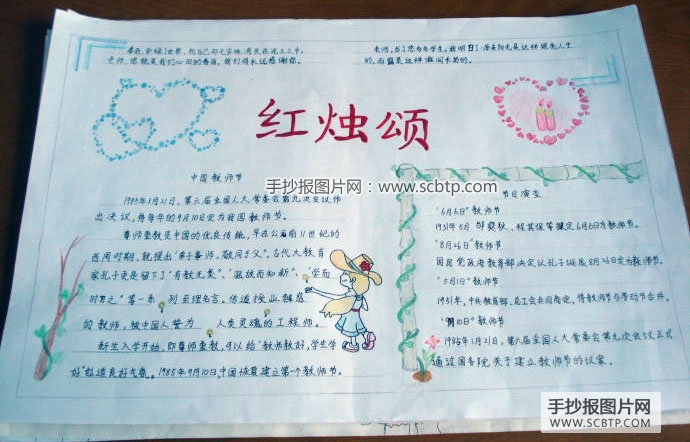 春雨,染绿了世界,而自己却无声地消失在泥土之中。
老师,您就是我们心田的春雨,我们将永远感谢你。
老师,当了您的学生,我明白了:原来阳光是这样照亮人生
的,雨露是这样滋润禾苗的。
红烛颂
手抄报图片网:www.scbtp.com
中国教师节
1985年1月21日,第六届全国人大常委会第九次会议作
出决议,将每年的9月10日定为我国教师节。
尊师重教是中国的优良传统,早在公元前11世纪的
西周时期,就提出"弟子事师,敬同于父",古代大教育
家孔子更是留下了"有教无类"、"温故而知新"、"学而
时习之"等一系列至理名言,传道授业解惑
的教师,被中国人誉为人类灵魂的工程师。
新生入学开始,即尊师重教,可以给"教师教好,学生学
好"营造良好气氛。1985年9月10日,中国恢复建立第一个教师节。
节日演变
"6月6日"教师节
1931年5月邰爽秋、程其保等拟定6月6日为教师节。
"8月26日"教师节
国民党政府教育部决定以孔子诞辰8月26日定为教师节。
"5月1日"教师节
1951年,中共教育部、总工会共同商定,将教师节与劳动节合并。
"9月10日"教师节
1985年1月21日,第六届全国人大常委会第九次会议正式
通过国务院关于建立教师节的议案。
手抄报图片网
WWW.SCBTP.COM